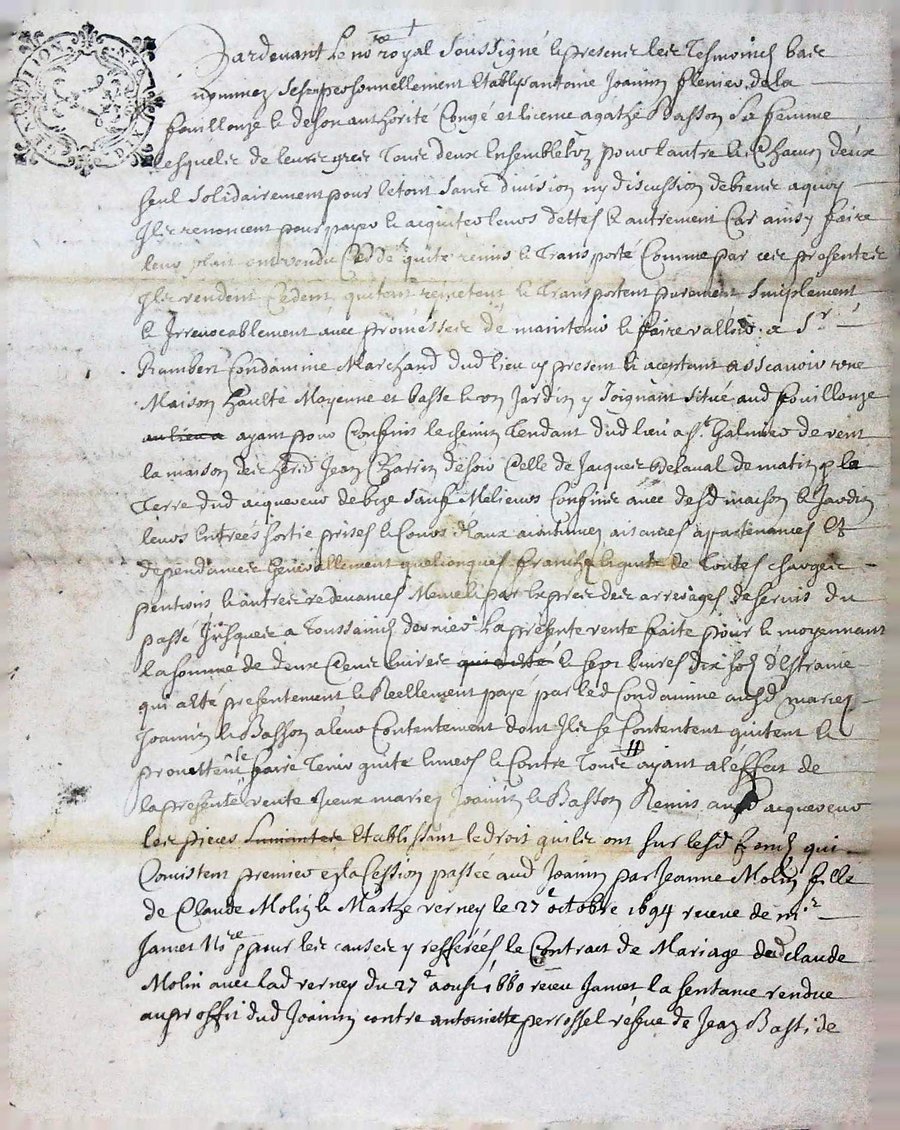 Pardevant le no.re royal soussigné & presents les tesmoins bas
nommez se sont personnellement establis antoine Joanin de la
fouillouze & de son authorité congé et licence agathe Basson sa femme
lesquels de leurs grez tous deux ensemble l'un pour l'autre & chacun d'eux
seul solidairement pour le tout sans division ny discussion de biens a quoy
Ils renoncent pour payer & acquiter leurs dettes & autrement Car ainsy faire
leur plait ont vendu Cédé quité remis & transporté Comme par ces presentes
Ils vendent Cedent quitent remetent & transportent purement simplement
& Irrevocablement avec promesses de maintenir & faire valloir a Sr.
Rambert Condamine Marchand dud lieu cy present & aceptant asscavoir une
Maison haulte Moyenne et basse & un Jardin y Joignant situé aud fouillouze
ayant pour Confins le chemin tendant dud lieu a St. Galmier de vent
la maison des Jean de soir Celle de Jacques Delaval de matin & la
Terre dud acquereur de bize sauf Melieurs Confins avec desd maison & Jardin
leurs Entrées sortie prises & Cours d'Eaux aisances apartenances &
dependances generallement quelconques franche & quite de toutes charges
pentions & autres redevances Mesme par Exprez des arrerages de servis du
passé Jusques a Toussaincts dernier La presente vente faite pour & moyennant
la somme de deux Cens livres & sept livres dix sols d'Estraine
qui a Esté presentement & Reellement payé par led Condamine ausd mariez
Joanin & Basson a leur Contentement dont Ils se Contentent quitent &
promettent faire tenir quite envers & Contre tous ayant a l'effait de
la presente vente Iceux mariez Joanin & Basson Remis aud acquereur
les pieces Establissant le droit qu'ils ont sur lesd fonds qui
Consistent premier en la Cession passée aud Joanin par Jeanne Molin fille
de Claude Molin & Mathe verney le 27e octobre 1694 receue de mr.
Jamet No.re pour les causes y refferées le Contract de Mariage dud claude
Molin avec lad verney du 27e aoust 1660 receu Jamet la sentance rendue
au proffit dud Joanin contre antoinette perrossel vefve de Jean Bastide